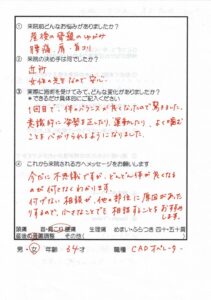 ① 来院前どんなお悩みがありましたか？
産後の骨盤のゆがみ
腰痛、肩・首コリ
② 来院の決め手は何でしたか？
近所
女性の先生なので安心
③ 実際に施術を受けてみて、どんな変化がありましたか？
*できるだけ具体的にご記入ください
1回目で、体のバランスが良くなったので驚きました。
意識的に姿勢を正したり、運動したり、よく噛む
ことを心がけられるようになりました。
④ これから来院される方へメッセージをお願いします
今だに不思議ですが、どんどん体が良くなる
のが何となくわかります。
何げない相談が、他の部位に原因があった
りするので、小さなことでも相談することをおすすめ
します。
頭痛 首・肩こり 腰痛 生理痛 めまい・ふらつき 四十・五十肩
産後の骨盤調整 その他（ ）
男・女 年齢 34才 職種 CADオペレーター